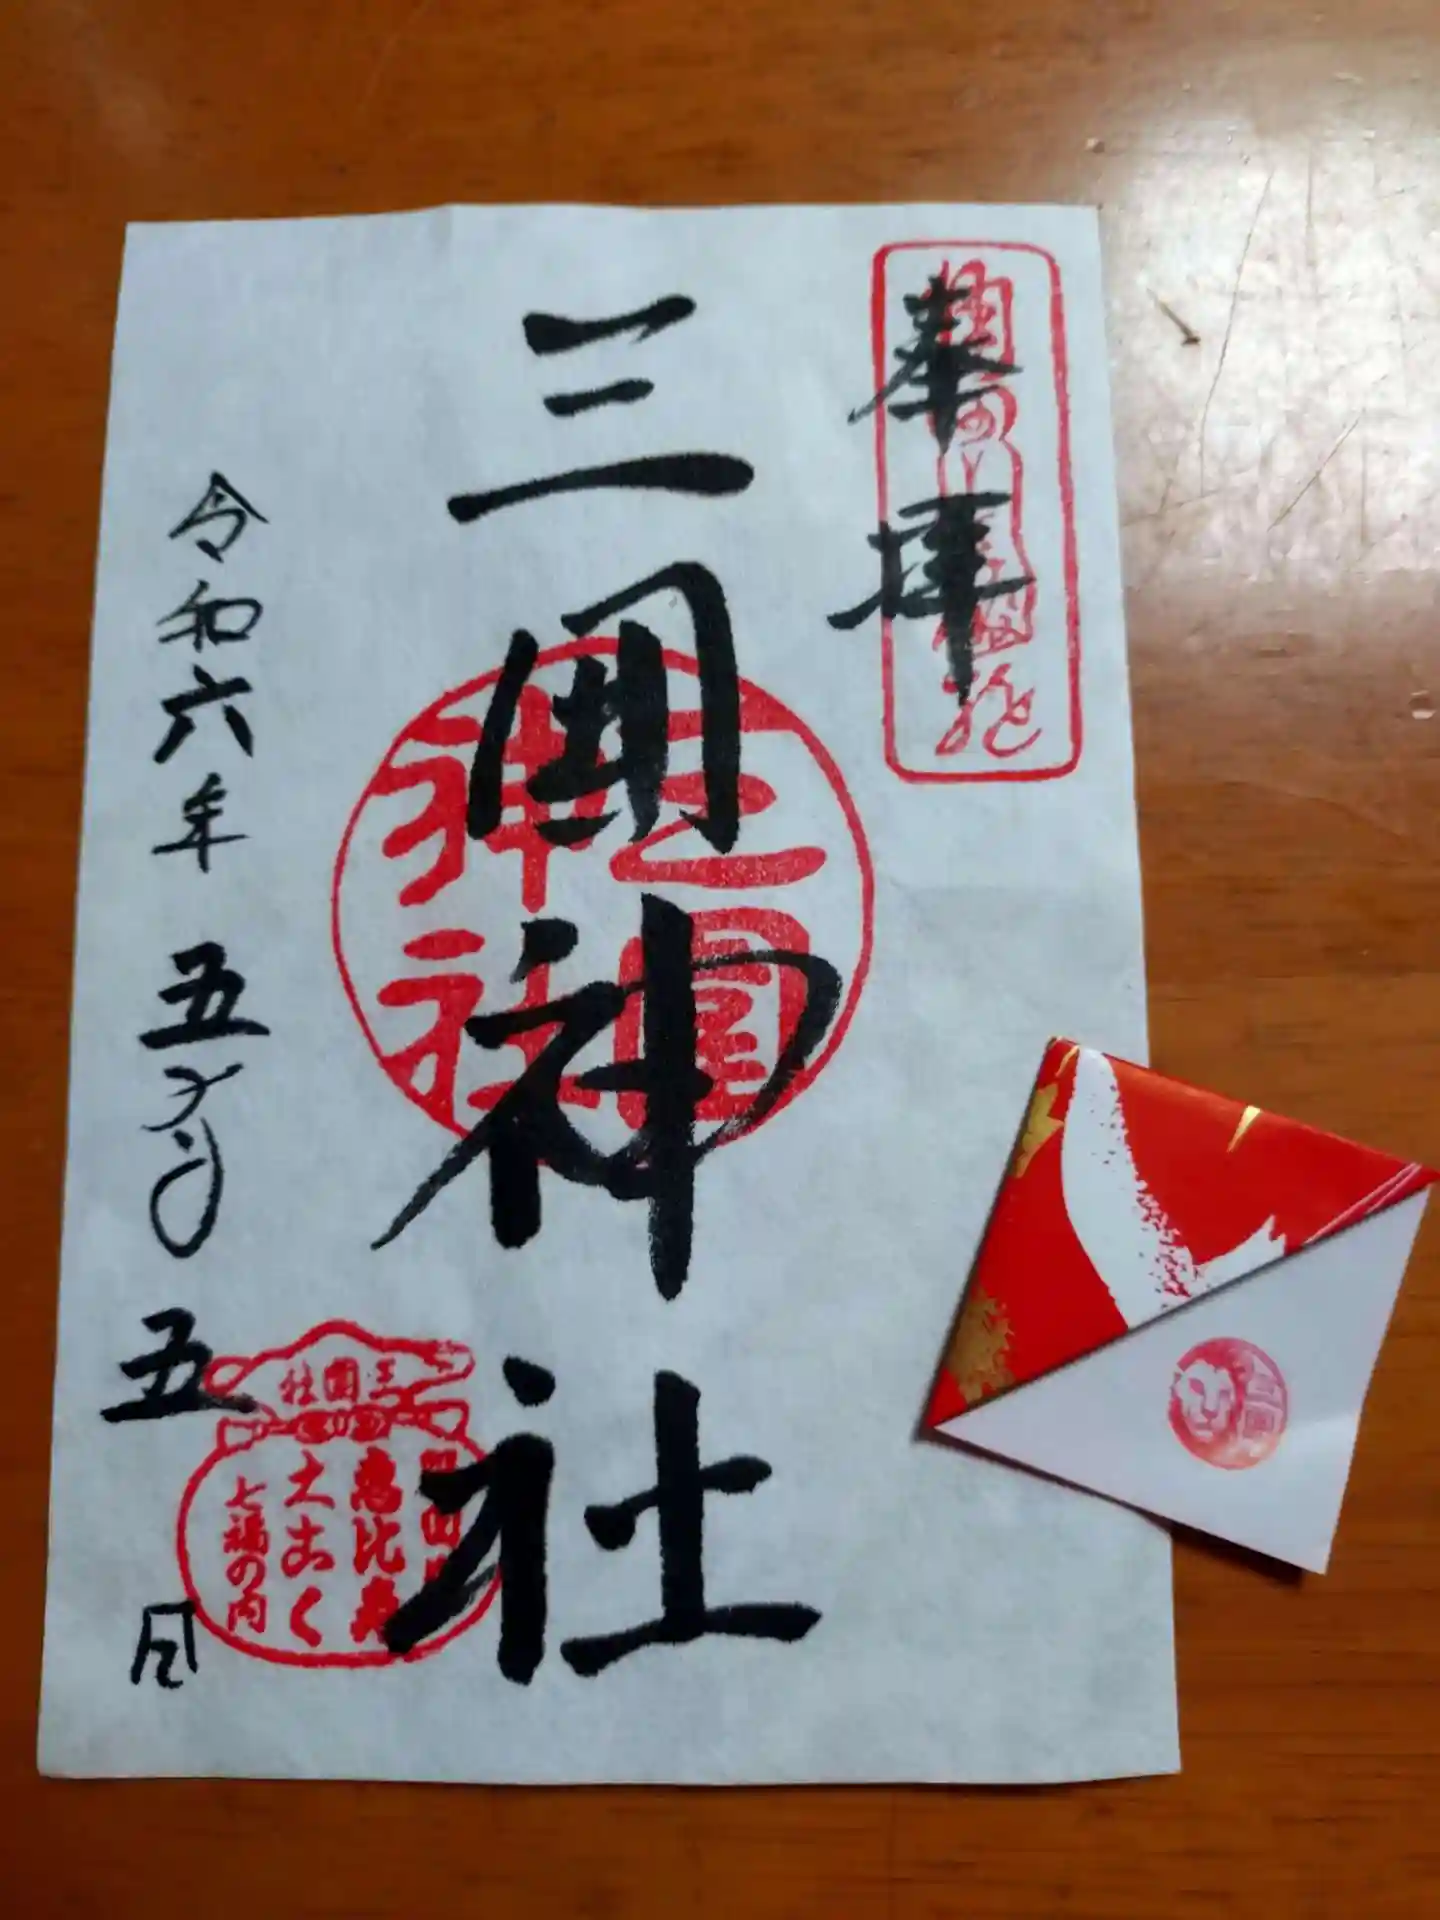 奉拝
三囲神社
三圍
神社
令和六年 五月 五日
三囲社
恵比寿
大こく
七福の内
三囲